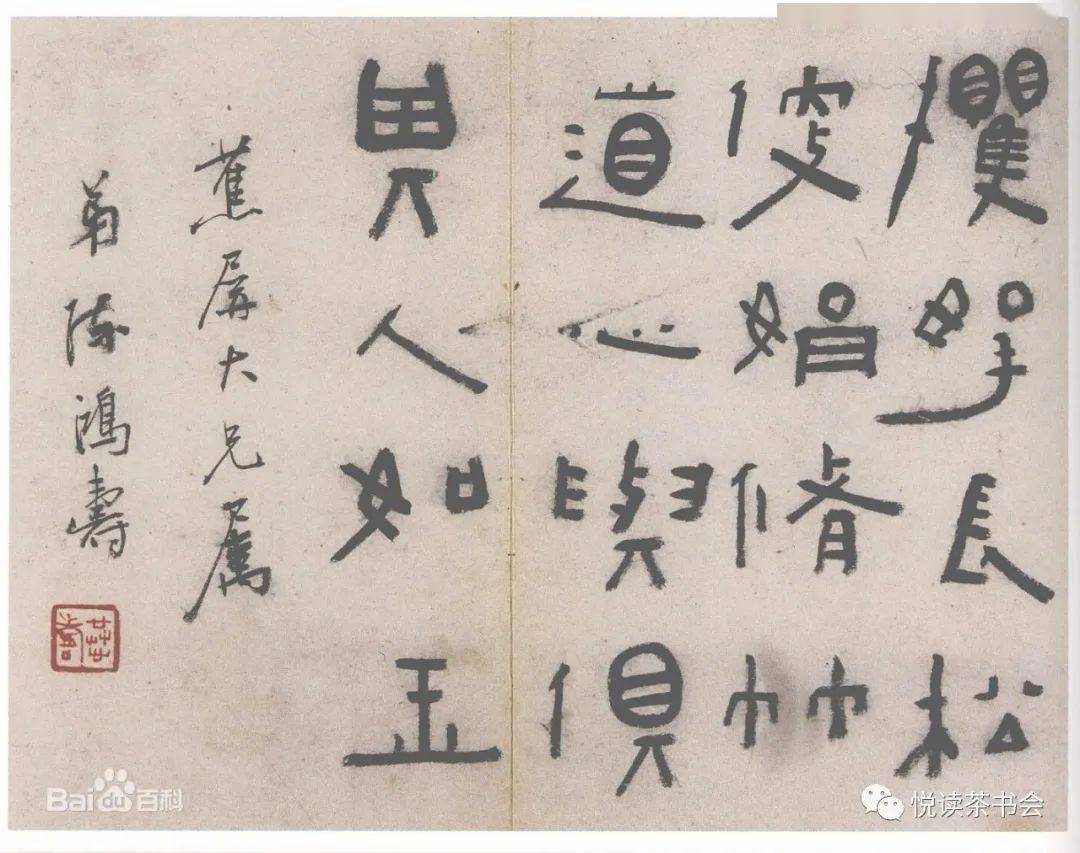 攫挐長松
便娟脩竹
道心與俱
異人如玉
蕉屏大兄屬
弟陳鴻壽
Baidu百科
悦读茶书会